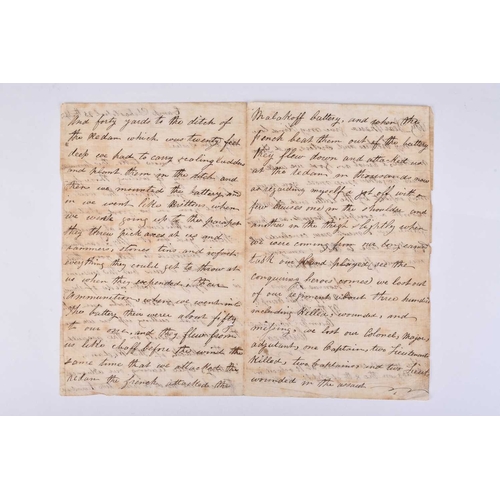 And forty yards to the ditch of
the Redam which was twenty feet
deep we had to carry scaling ladders
and plant them in the ditch and
then we mounted the battery and
in we went like Brittons, when
we were going up to the parapet
they threw pickaxes at us and
hammers stones tins and
everything they could get to throw at
us when they expended their
ammunition, when we went into
the battery they were about fifty
to our one, and they flew from
us like chaff before the wind the
same time that we attacked the
Redam the french attacked the
Malakoff battery, and when the
french beat them out of the battery
they flew down and attacked us
at the Redam in thousands now
as regarding myself I got off with a
few bruises one in the shoulder and
another in the thigh slightly when
we were coming from our
our band played, see the
conquering heroes comes) we lost out
of our regiment about three hundred
including killed, wounded, and
missing, we lost our Colonel, Major,
adjutant, one Captain, two Lieutenants
killed, two Captains and two
wounded in the assault